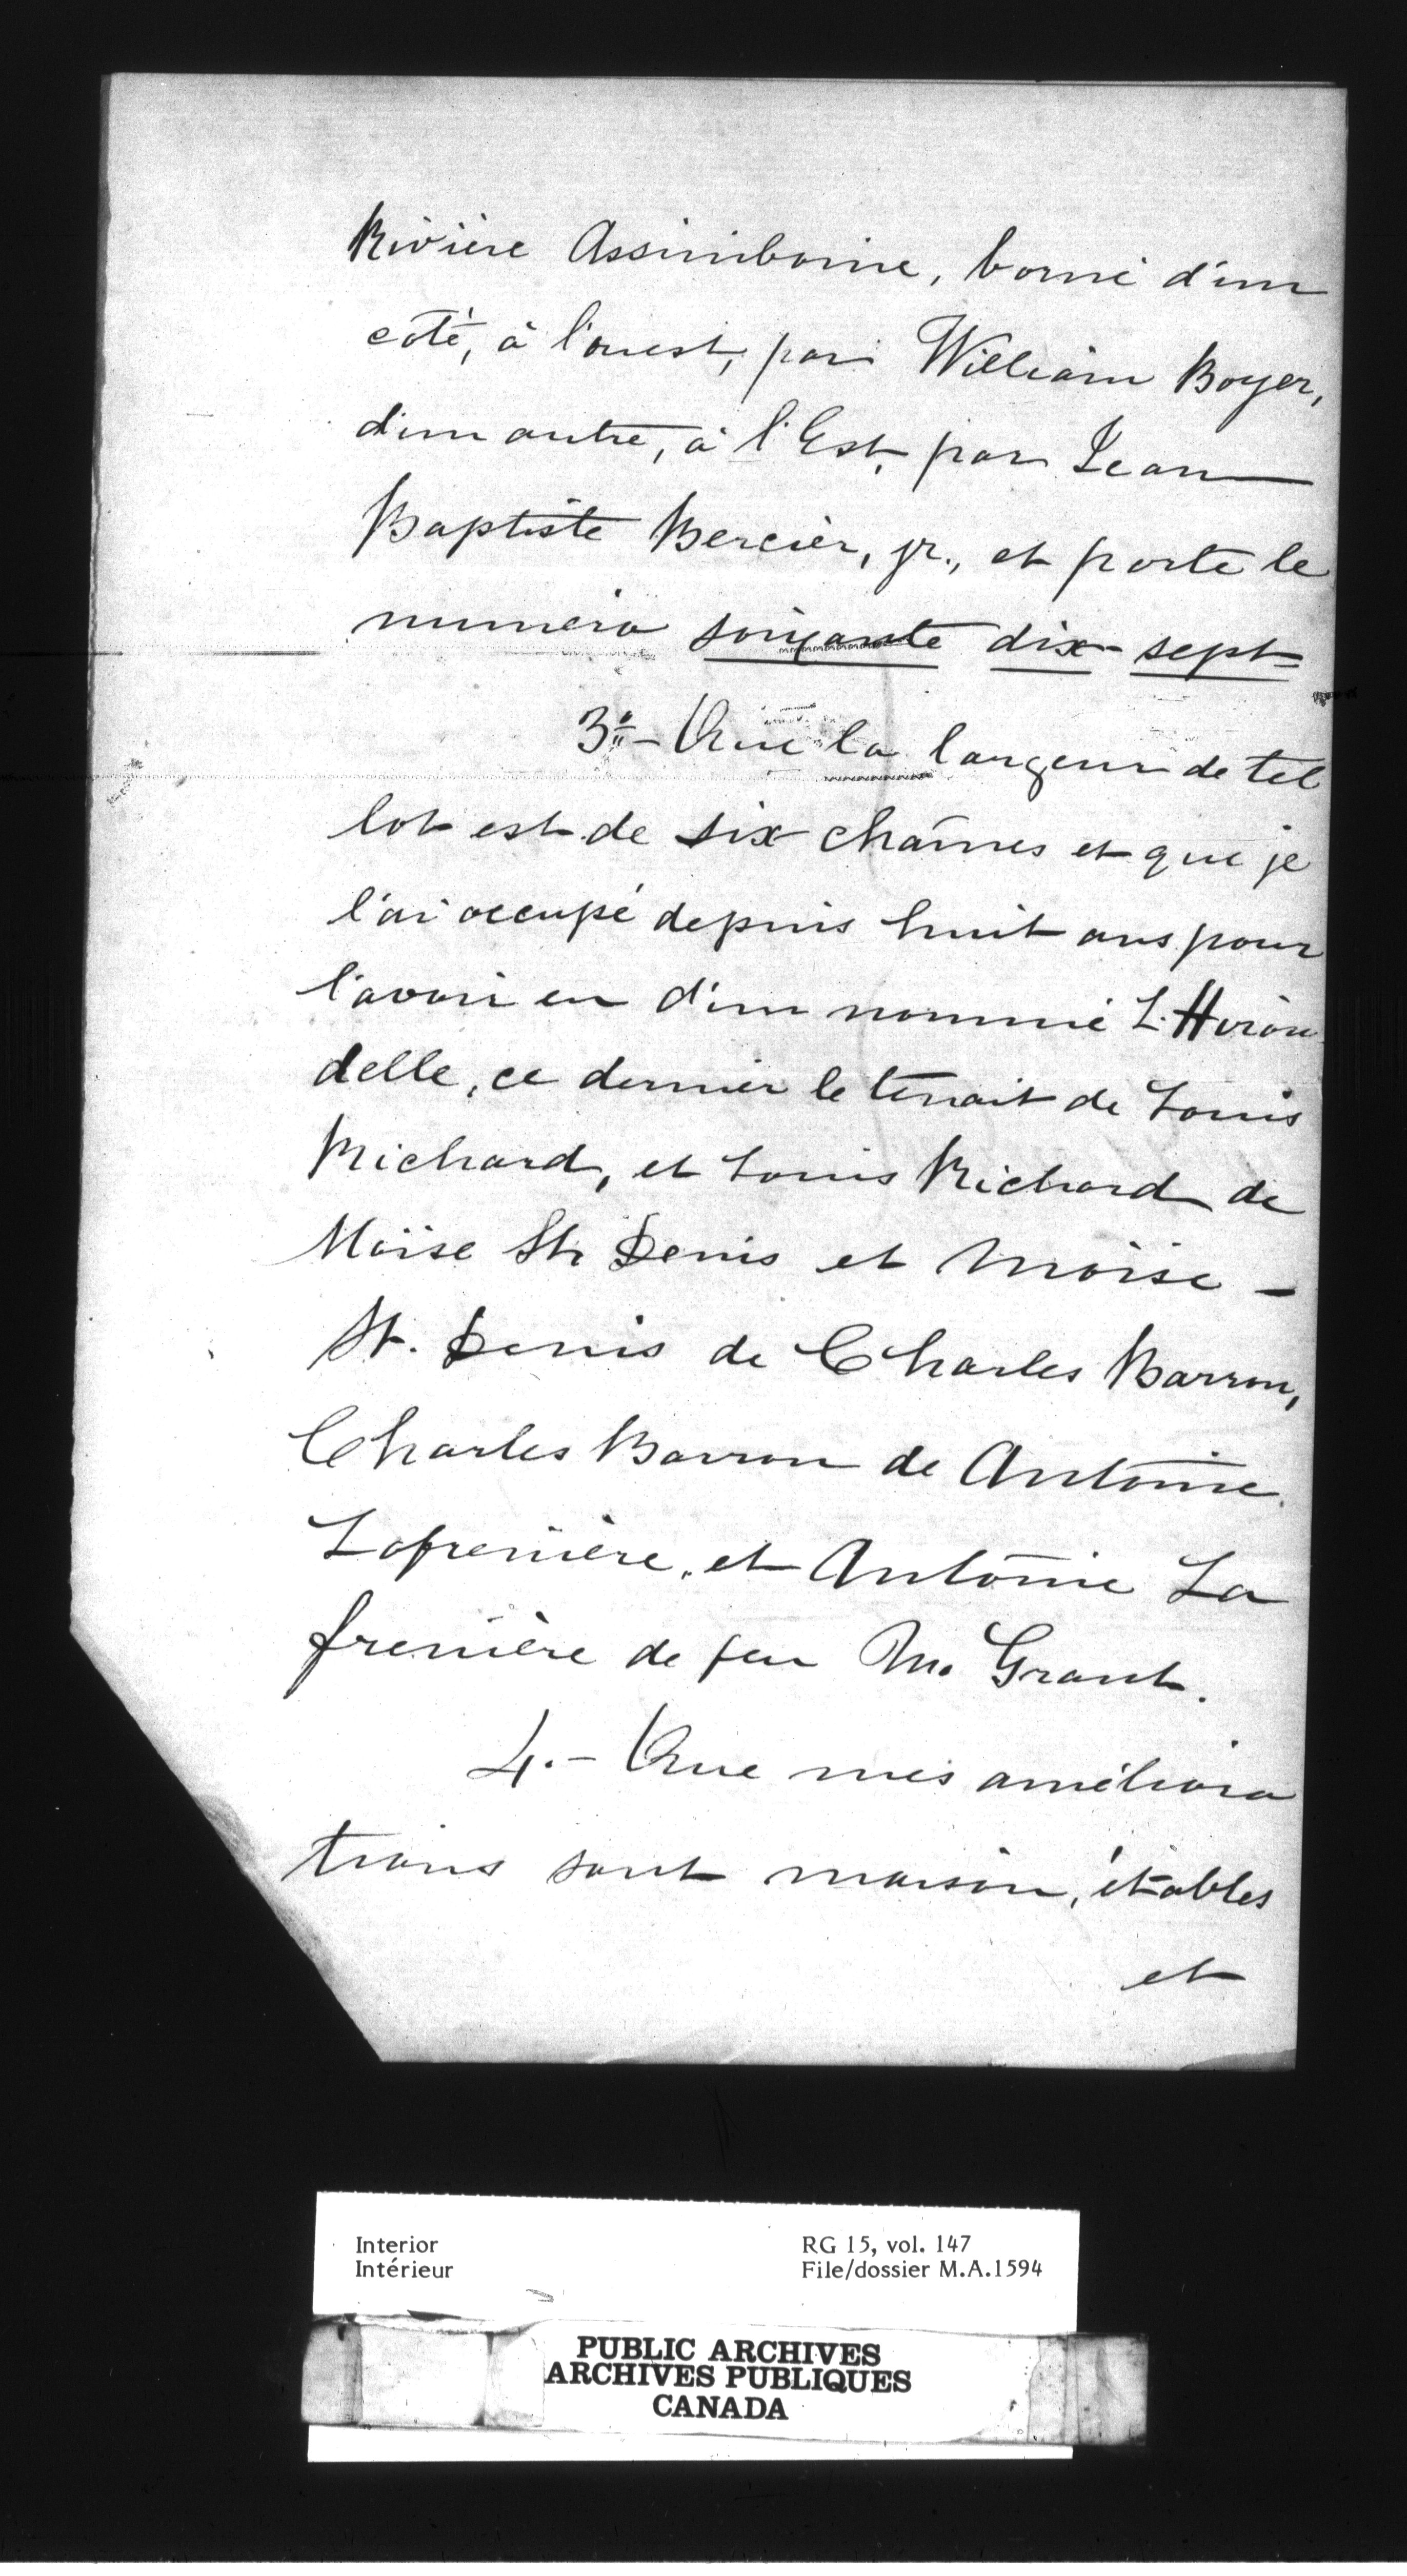 Rivière Assiniboine, borné d'un
côté, à l'ouest, par William Boyer,
d'un autre, à l'Est, par Jean
Baptiste Bercier, jr., et porte le
numéro soixante dix-sept
3º- Que la largeur de tel
lot est de six chaînes et que je
l'ai occupé depuis huit ans pour
l'avoir eu d'un nommé L'Hiron
delle, ce dernier le tenait de Louis
Richard, et Louis Richard de
Moïse St Denis et Moïse -
St. Denis de Charles Barron,
Charles Barron de Antoine
Lafrenière, et Antoine La
frenière de feu M. Grant.
4.- Que mes améliora
tions sont maison, étables
et
Interior RG 15, vol. 147
Intérieur File/dossier M.A.1594
PUBLIC ARCHIVES
ARCHIVES PUBLIQUES
CANADA